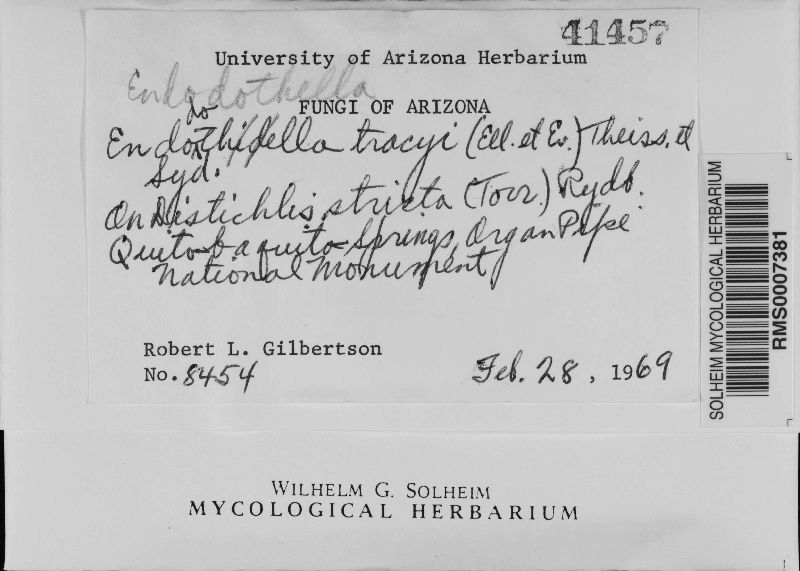 41457
University of Arizona Herbarium
Endodothella
FUNGI OF ARIZONA
do
Endothidella tracyi (Ell. et Ev.) Theiss. et
Syd.
On Distichlis stricta (Torr.) Rydb.
Quito-baquito Springs, Organ Pipe
National Monument
Robert L. Gilbertson
No. 8454
Feb. 28, 1969
SOLHEIM MYCOLOGICAL HERBARIUM
RMS0007381
WILHELM G. SOLHEIM
MYCOLOGICAL HERBARIUM